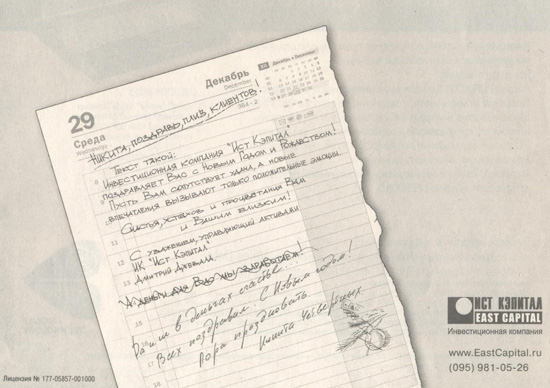 Декабрь
December
364-2
XII Декабрь • December
29
Среда
Wednesday
НИКИТА, ПОЗДРАВЬ, ПЛИЗ, КЛИЕНТОВ!
ТЕКСТ ТАКОЙ:
ИНВЕСТИЦИОННАЯ КОМПАНИЯ "ИСТ КЭПИТАЛ"
ПОЗДРАВЛЯЕТ ВАС С НОВЫМ ГОДОМ И РОЖДЕСТВОМ!
ПУСТЬ ВАМ СОПУТСТВУЕТ УДАЧА, А НОВЫЕ
ВПЕЧАТЛЕНИЯ ВЫЗЫВАЮТ ТОЛЬКО ПОЛОЖИТЕЛЬНЫЕ ЭМОЦИИ.
СЧАСТЬЯ, УСПЕХОВ И ПРОЦВЕТАНИЯ ВАМ
И ВАШИМ БЛИЗКИМ!
С УВАЖЕНИЕМ, УПРАВЛЯЮЩИЙ АКТИВАМИ
ИК "ИСТ КЭПИТАЛ"
ДМИТРИЙ
А ДЕНЬГИ ДЛЯ ВАС МЫ ЗАРАБОТАЕМ!
в деньгах счастье.
Всех поздравил. С Новым годом!
Пора праздновать.
Никита Четвериных
ИСТ КЭПИТАЛ
EAST CAPITAL
Инвестиционная компания
www.EastCapital.ru
(095) 981-05-26
Лицензия № 177-05857-001000